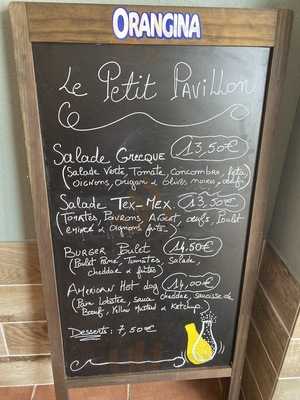 ORANGINA
Le Petit Pavillon
Salade Grecque 13,50€
(Salade Verte, Tomate, Concombre, feta
oignons, origan & olives noires, œufs)
Salade Tex-Mex 13,50€
(Tomates, Poivrons, œufs, Poulet
émincé & Oignons frits)
Burger Poulet 14,50€
(Poulet Pané, Tomates, Salade,
cheddar & frites)
American Hot dog 14,00€
(Pain Lobster, sauce cheddar, saucisse de
Bœuf, Yellow Mustard & Ketchup)
Desserts: 7,50€